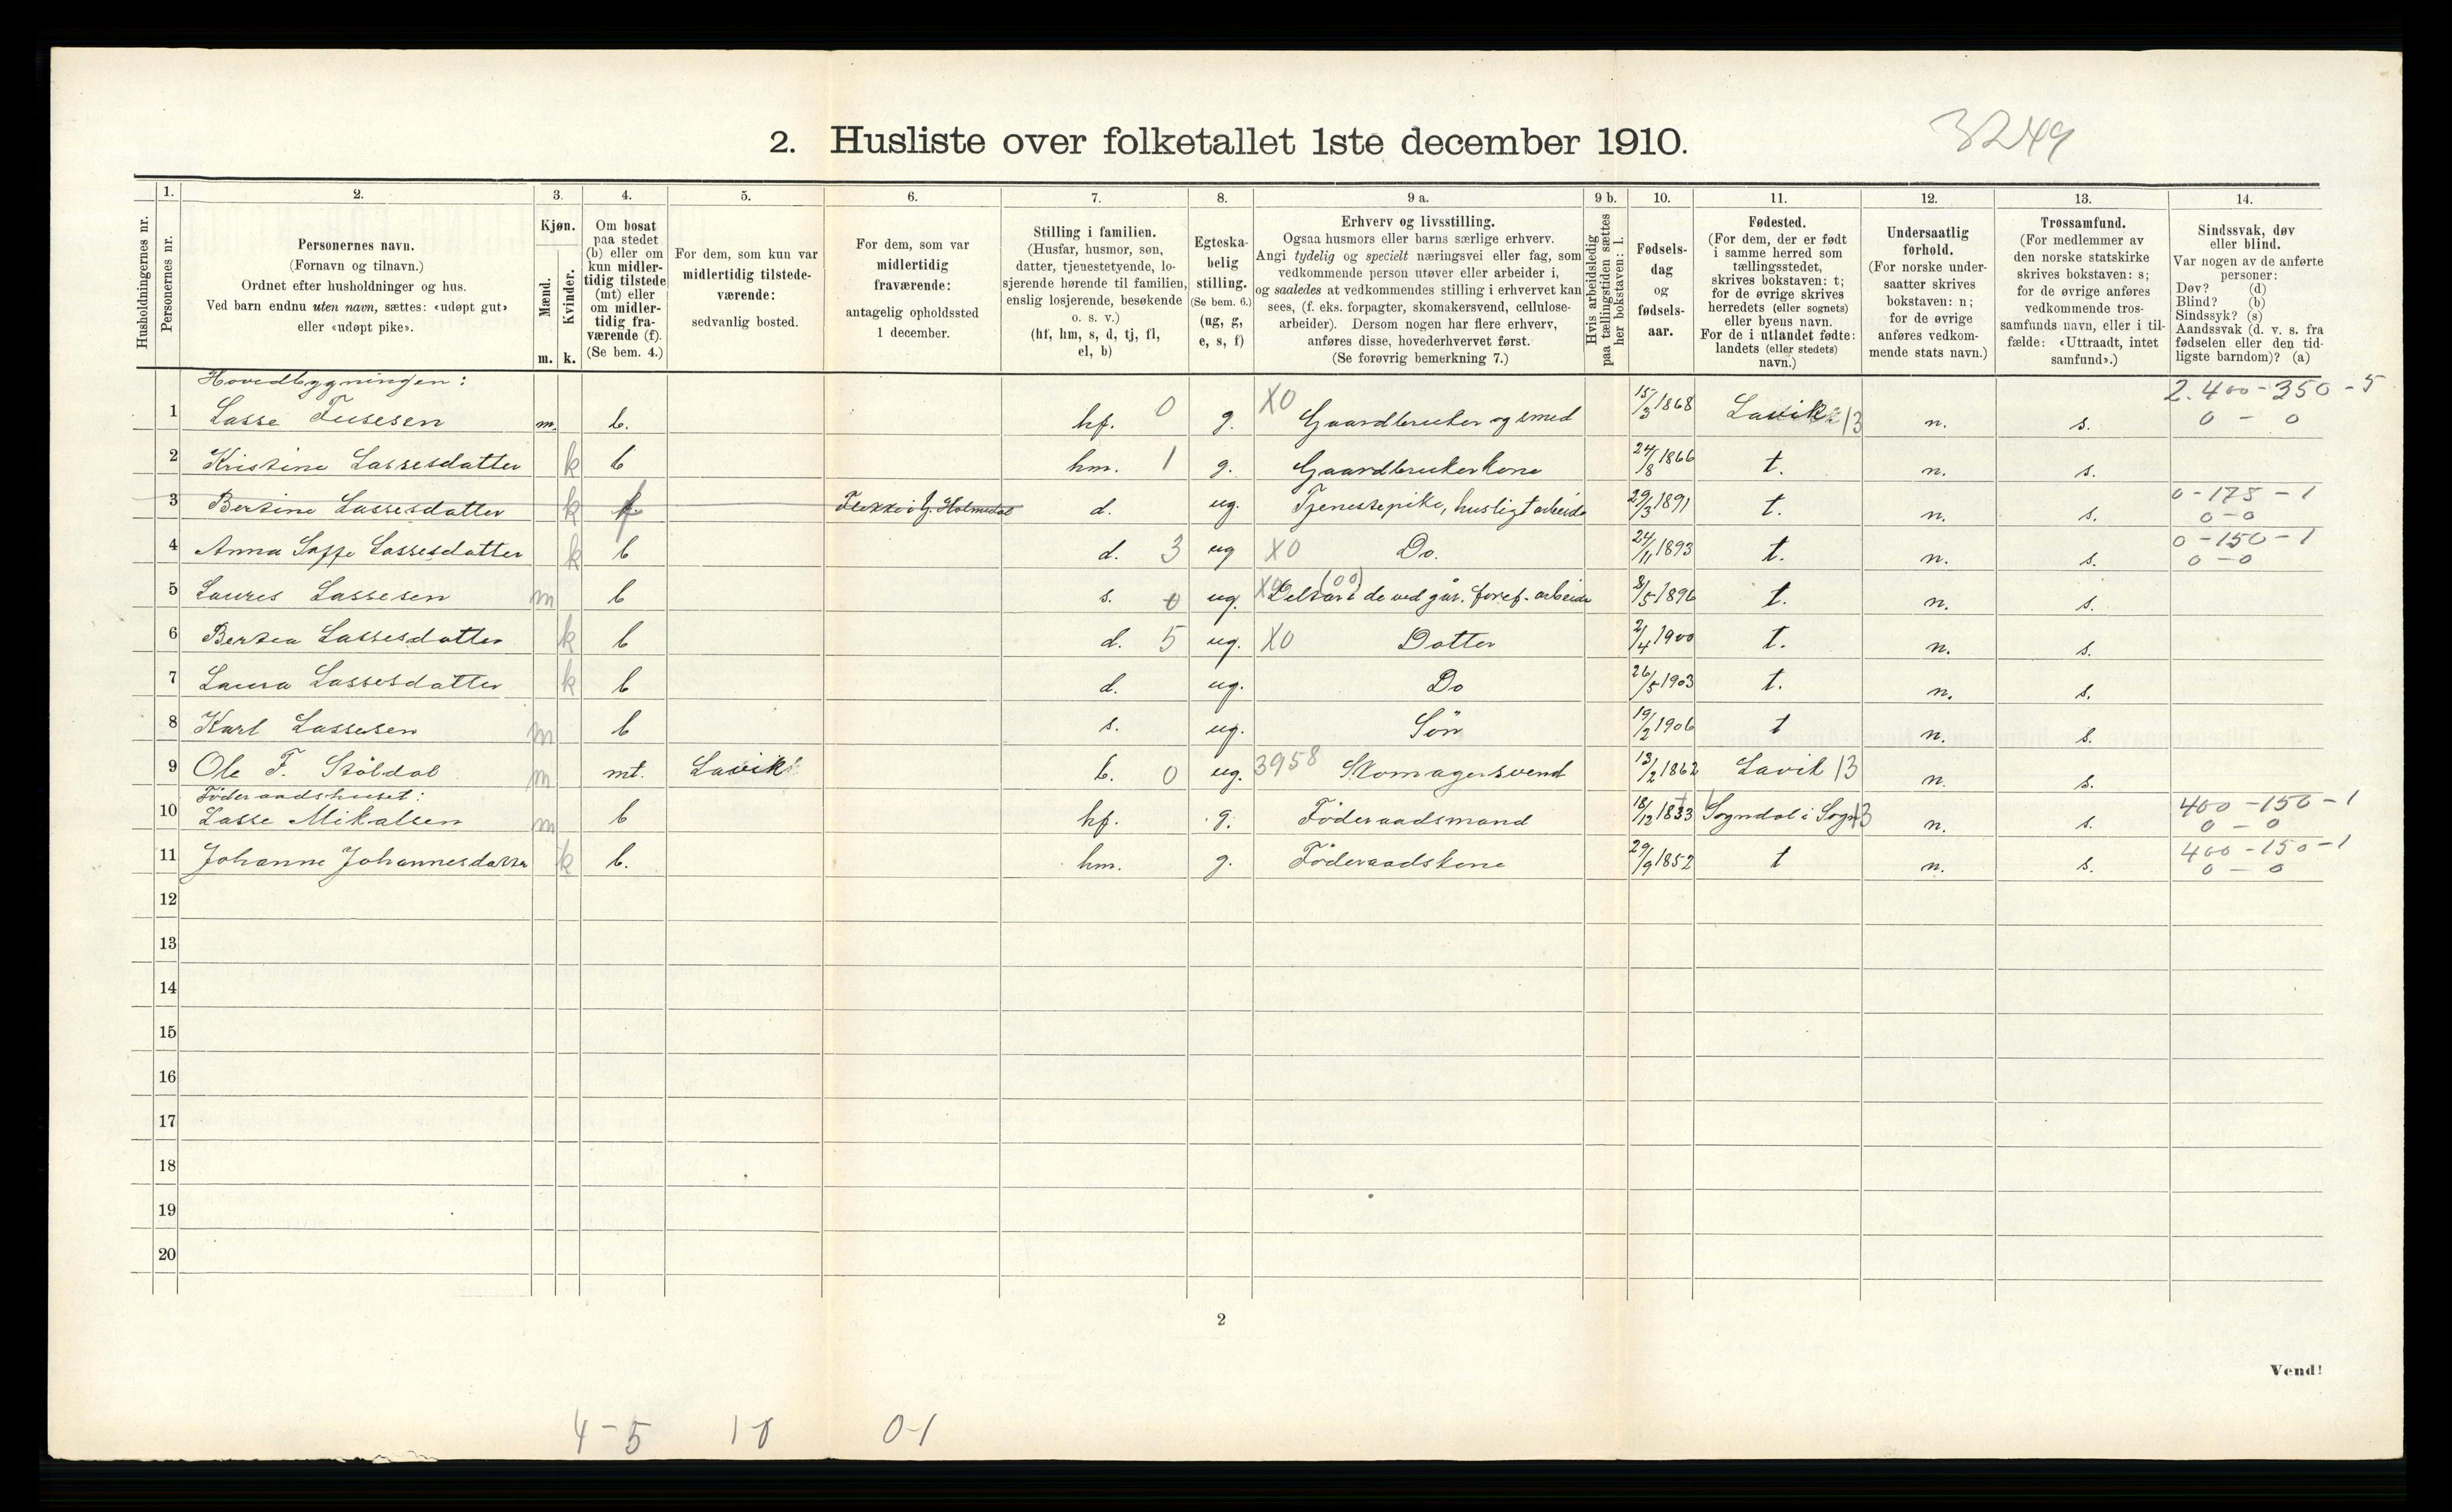 2. Husliste over folketallet 1ste december 1910.
3249
Husholdningernes nr.
1. Personernes nr.
2. Personernes navn. (Fornavn og tilnavn.) Ordnet efter husholdninger og hus. Ved barn endnu uten navn, sættes: «udøpt gut» eller «udøpt pike».
3. Kjøn. Mænd. m. Kvinder. k.
4. Om bosat paa stedet (b) eller om kun midlertidig tilstede (mt) eller om midlertidig fraværende (f). (Se bem. 4.)
5. For dem, som kun var midlertidig tilstedeværende: sedvanlig bosted.
6. For dem, som var midlertidig fraværende: antagelig opholdssted 1 december.
7. Stilling i familien. (Husfar, husmor, søn, datter, tjenestetyende, losjerende hørende til familien, enslig losjerende, besøkende o. s. v.) (hf, hm, s, d, tj, fl, el, b)
8. Egteskabelig stilling. (Se bem. 6.) (ug, g, e, s, f)
9 a. Erhverv og livsstilling. Ogsaa husmors eller barns særlige erhverv. Angi tydelig og specielt næringsvei eller fag, som vedkommende person utøver eller arbeider i, og saaledes at vedkommendes stilling i erhvervet kan sees, (f. eks. forpagter, skomakersvend, cellulosearbeider). Dersom nogen har flere erhverv, anføres disse, hovederhvervet først. (Se forøvrig bemerkning 7.)
9 b. Hvis arbeidsledig paa tællingstiden sættes her bokstaven: l.
10. Fødselsdag og fødselsaar.
11. Fødested. (For dem, der er født i samme herred som tællingsstedet, skrives bokstaven: t; for de øvrige skrives herredets (eller sognets) eller byens navn. For de i utlandet fødte: landets (eller stedets) navn.)
12. Undersaatlig forhold. (For norske undersaatter skrives bokstaven: n; for de øvrige anføres vedkommende stats navn.)
13. Trossamfund. (For medlemmer av den norske statskirke skrives bokstaven: s; for de øvrige anføres vedkommende trossamfunds navn, eller i tilfælde: «Uttraadt, intet samfund».)
14. Sindssvak, døv eller blind. Var nogen av de anførte personer: Døv? (d) Blind? (b) Sindssyk? (s) Aandssvak (d. v. s. fra fødselen eller den tidligste barndom)? (a)
Hovedbygningen:
1 Lasse Tusesen m. b. hf. 0 g. X0 Gaardbruker og smed 15/3 1868 Lavik 13 n. s. 2.400-350-5 0-0
2 Kristine Lassesdatter k b hm. 1 g. Gaardbrukerkone 24/8 1866 t. n. s.
3 Bertine Lassesdatter k f Flekke i Y. Holmedal d. ug. Tjenestepike, husligt arbeide 29/3 1891 t. n. s. 0-175-1 0-0
4 Anna Lassesdatter k b d. 3 ug X0 Do. 24/11 1893 t. n. s. 0-150-1 0-0
5 Laures Lassesen m b s. 0 ug. X0 (00) ved arbeide 8/5 1896 t. n. s.
6 Bertea Lassesdatter k b d. 5 ug. X0 Datter 2/4 1900 t. n. s.
7 Laura Lassesdatter k b d. ug. Do 26/5 1903 t. n. s.
8 Karl Lassesen m b s. ug. Sön 19/2 1906 t n. s.
9 Ole F. Stöldal m mt. Lavik b. 0 ug. 3958 Skomagersvend 13/2 1862 Lavik 13 n. s.
Föderaadshuset:
10 Lasse Mikalsen m b hf. g. Föderaadsmand 18/12 1833 Sogndal i Sogn 13 n. s. 400-150-1 0-0
11 Johanne Johannesdatter k b. hm. g. Föderaadskone 29/9 1852 t n. s. 400-150-1 0-0
12
13
14
15
16
17
18
19
20
2
Vend!
4-5 1-0 0-1